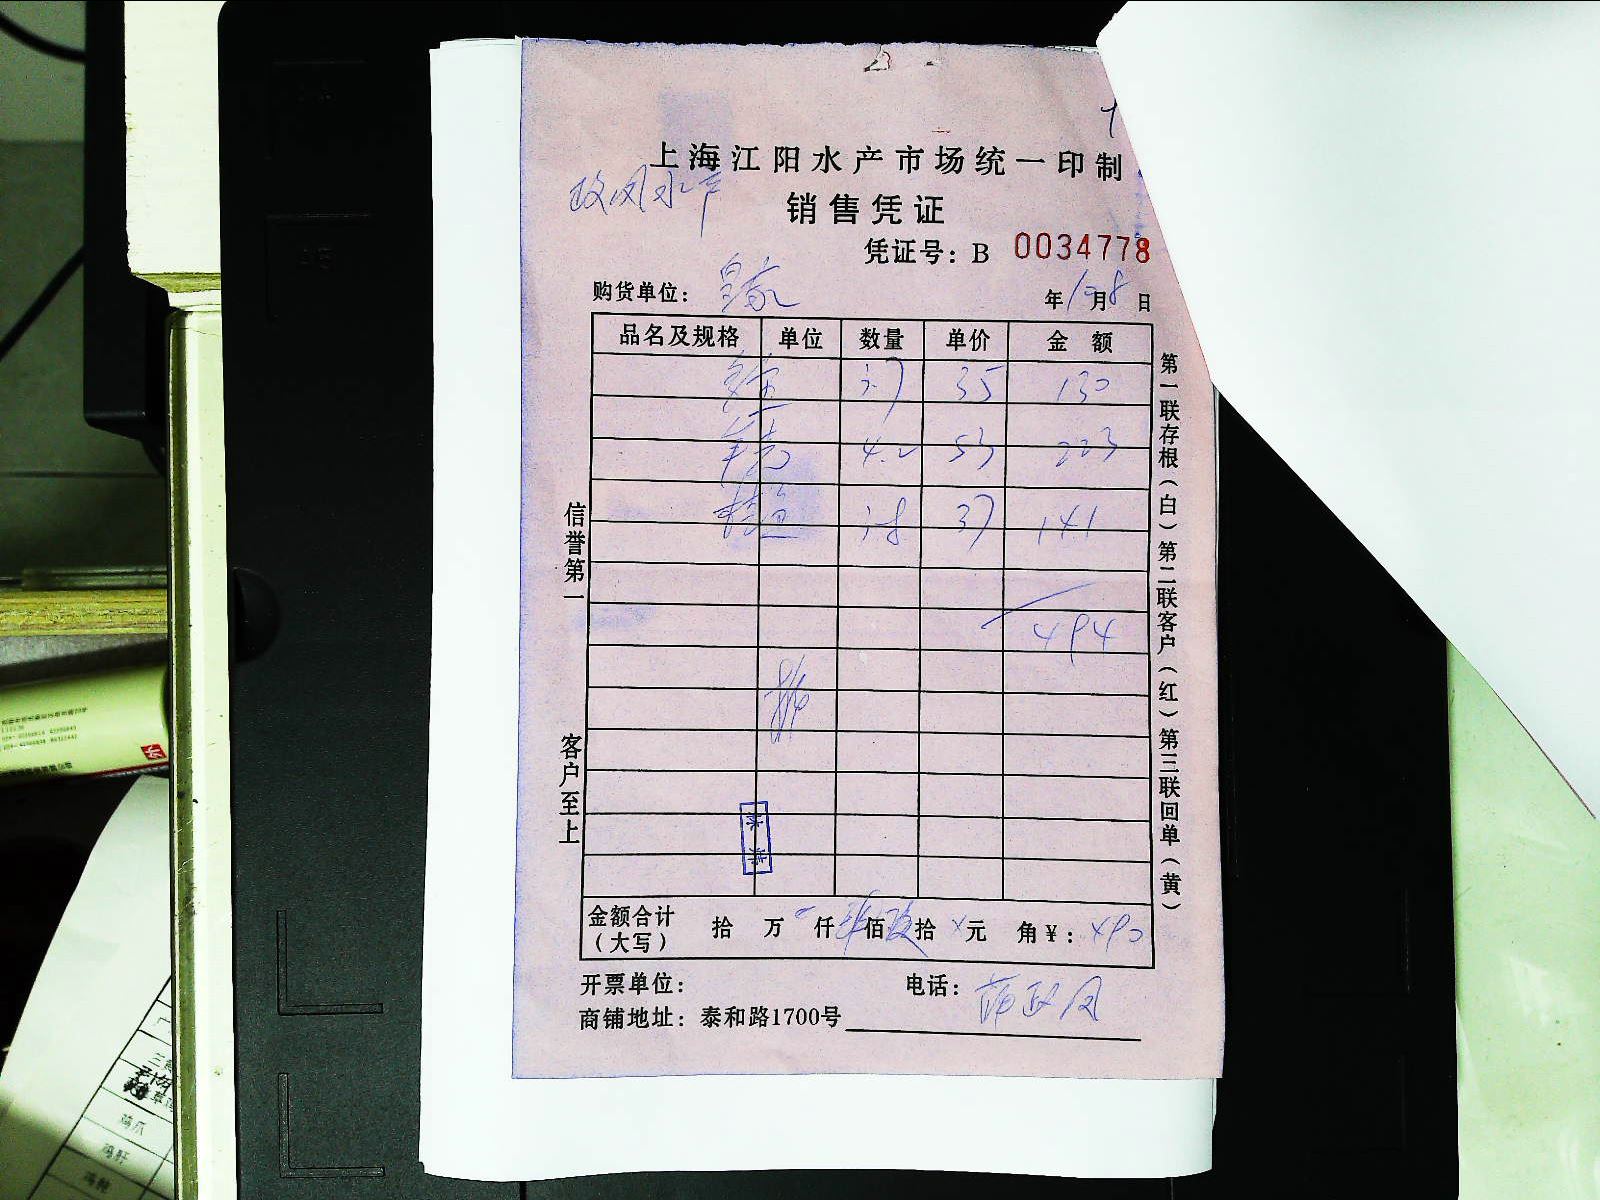 上海江阳水产市场统一印制
政凤水产
销售凭证
凭证号：B 0034778
购货单位：皇家
年12月8日
品名及规格 单位 数量 单价 金额
3.7 35 130
4.2 53 223
桂鱼 3.8 37 141
494
信誉第一
客户至上
第一联存根（白）第二联客户（红）第三联回单（黄）
金额合计（大写） 拾 万 仟 肆佰 玖拾 元 角￥：490
开票单位：
电话：
商铺地址：泰和路1700号
鸡爪
鸡肝